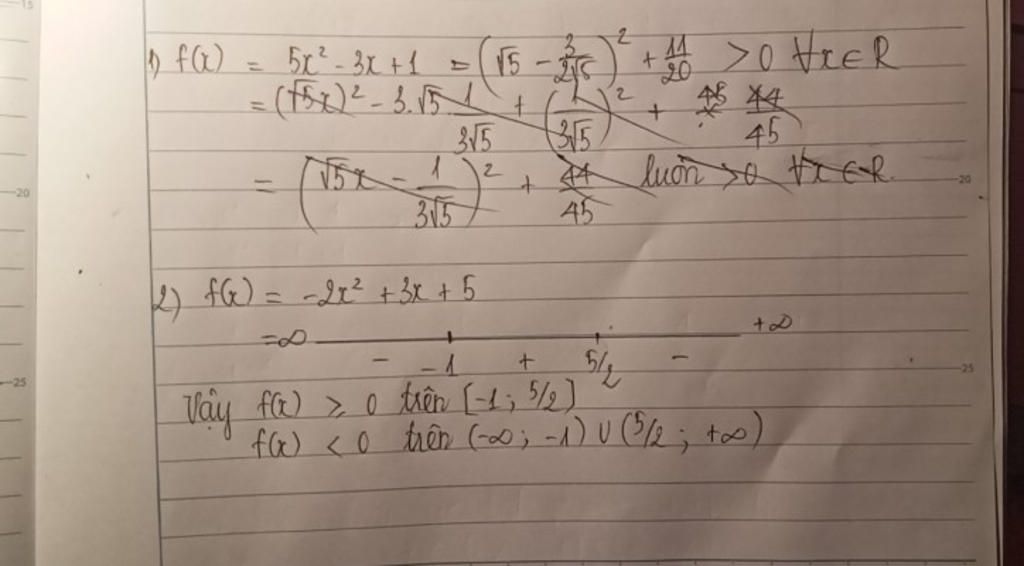 1) f(x) = 5x² - 3x + 1 = (√5 - 3/2√5)² + 11/20 > 0 ∀x ∈ R
= (√5x)² - 3.√5 1/3√5 + (1/3√5)² + 44/45
= (√5x - 1/3√5)² + 44/45 luôn > 0 ∀x ∈ R
2) f(x) = -2x² + 3x + 5
-∞ +∞
- -1 + 5/2 -
Vậy f(x) ≥ 0 trên [-1; 5/2]
f(x) < 0 trên (-∞; -1) ∪ (5/2; +∞)
15
20
25
20
25